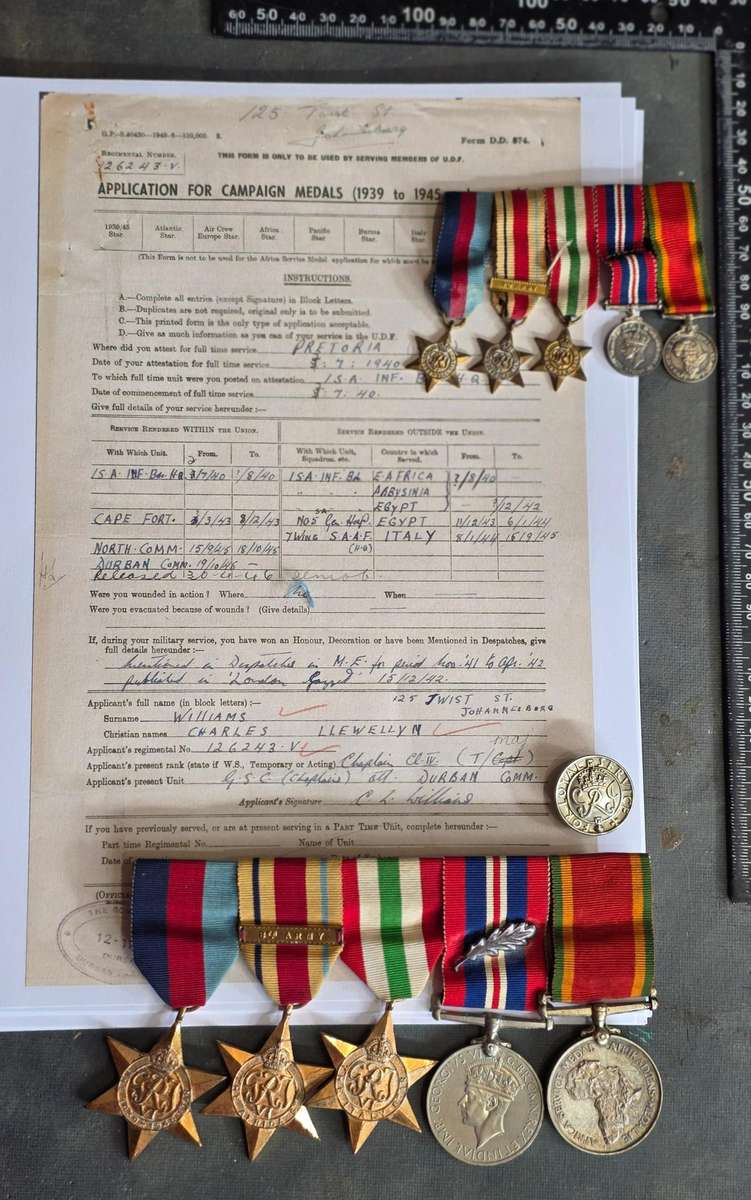 125 Twist St
G.P.-S.40430—1945-6—110,000. S.
Form D.D. 874.
REGIMENTAL NUMBER.
126243.V.
THIS FORM IS ONLY TO BE USED BY SERVING MEMBERS OF U.D.F.
APPLICATION FOR CAMPAIGN MEDALS (1939 to 1945
1939/45 Star. Atlantic Star. Air Crew Europe Star. Africa Star. Pacific Star. Burma Star. Italy Star.
(This Form is not to be used for the Africa Service Medal application for which must be
INSTRUCTIONS.
A.—Complete all entries (except Signature) in Block Letters.
B.—Duplicates are not required, original only is to be submitted.
C.—This printed form is the only type of application acceptable.
D.—Give as much information as you can of your service in the U.D.F.
Where did you attest for full time service PRETORIA
Date of your attestation for full time service : 7 : 1940
To which full time unit were you posted on attestation 1 S.A. INF. H.Q.
Date of commencement of full time service 7 : 40.
Give full details of your service hereunder :—
SERVICE RENDERED WITHIN THE UNION. SERVICE RENDERED OUTSIDE THE UNION.
With Which Unit. From. To. With Which Unit, Squadron, etc. Country in which Served. From. To.
1 S.A. INF. Bde HQ /7/40 /8/40 1 S.A. INF. Bde E AFRICA ?/8/40 —
ABBYSINIA
EGYPT — /12/42
CAPE FORT. /3/43 /12/43 NO5 SA Gen Hosp. EGYPT 11/12/43 6/1/44
7 WING S.A.A.F. ITALY 8/1/44 15/9/45
NORTH COMM. 15/9/45 18/10/45
DURBAN COMM. 19/10/45 —
Released 30-4-46 demob.
Were you wounded in action ? Where no When
Were you evacuated because of wounds ? (Give details)
If, during your military service, you have won an Honour, Decoration or have been Mentioned in Despatches, give
full details hereunder :—
Mentioned in Despatches in M.E. for period Nov. '41 to Apr. '42
published in 'London Gazzed' 15/12/42.
Applicant's full name (in block letters) :— 125 TWIST ST.
JOHANNESBURG
Surname WILLIAMS
Christian names CHARLES LLEWELLYN
Applicant's regimental No. 126243.V
Applicant's present rank (state if W.S., Temporary or Acting) Chaplain Cl IV. (T/Capt) maj
Applicant's present Unit G.S.C. (Chaplains) att. DURBAN COMM.
Applicant's Signature C. L. Williams
If you have previously served, or are at present serving in a PART TIME Unit, complete hereunder :—
Part time Regimental No. Name of Unit
Date of
FOR LOYAL SERVICE
8TH ARMY
GEORGIVS VI
AFRICA SERVICE MEDAL